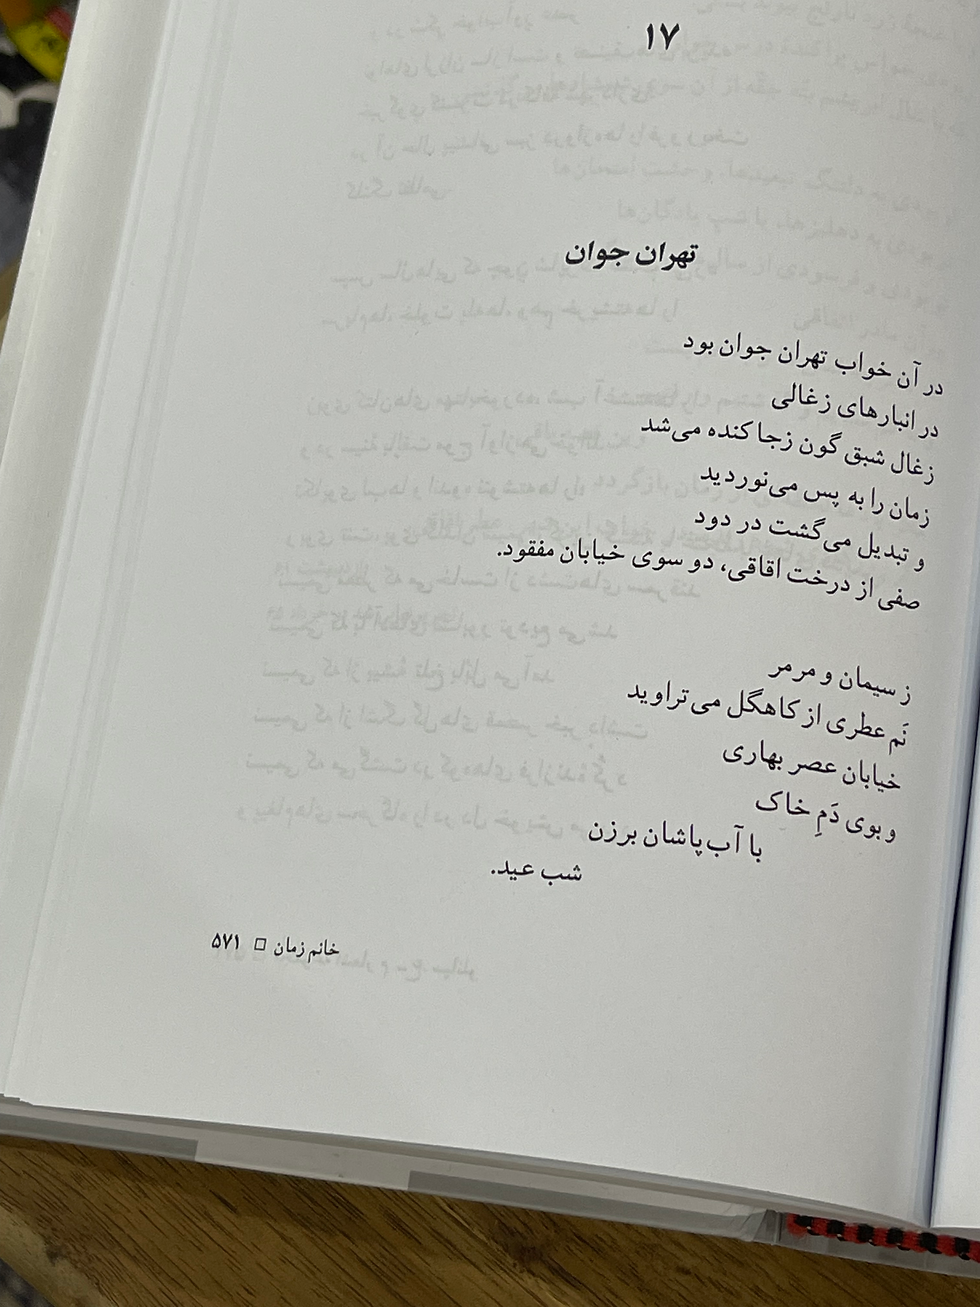 ۱۷
تهران جوان
در آن خواب تهران جوان بود
در انبارهای زغالی
زغال شبق گون زجا کنده می‌شد
زمان را به پس می‌نوردید
و تبدیل می‌گشت در دود
صفی از درخت اقاقی، دو سوی خیابان مفقود.
ز سیمان و مرمر
نَم عطری از کاهگل می‌تراوید
خیابان عصر بهاری
و بوی دَمِ خاک
با آب‌پاشان برزن
شب عید.
خانم زمان □ ۵۷۱